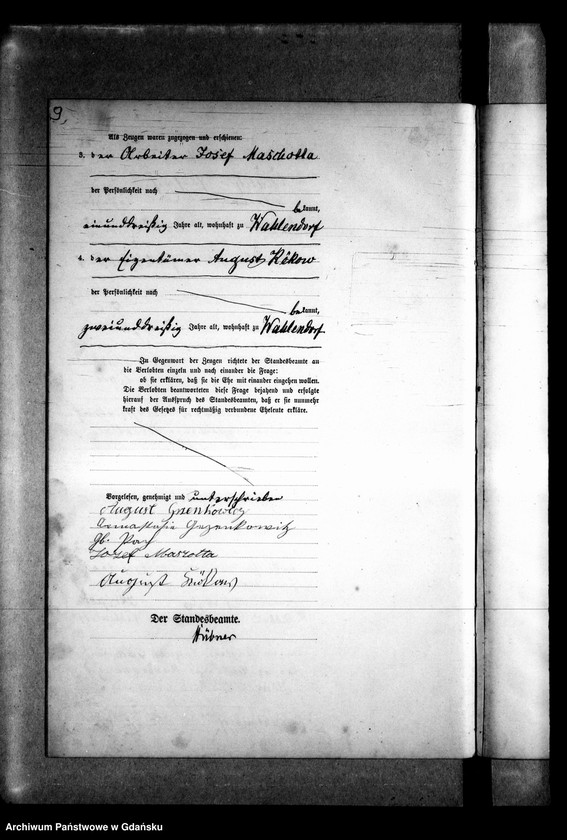 9,
Als Zeugen waren zugezogen und erschienen:
3. der Arbeiter Josef Maschotta
der Persönlichkeit nach
bekannt,
einunddreißig Jahre alt, wohnhaft zu Wahlendorf
4. der Eigentümer August Kükow
der Persönlichkeit nach
bekannt,
zweiunddreißig Jahre alt, wohnhaft zu Wahlendorf
In Gegenwart der Zeugen richtete der Standesbeamte an
die Verlobten einzeln und nach einander die Frage:
ob sie erklären, daß sie die Ehe mit einander eingehen wollen.
Die Verlobten beantworteten diese Frage bejahend und erfolgte
hierauf der Ausspruch des Standesbeamten, daß er sie nunmehr
kraft des Gesetzes für rechtmäßig verbundene Eheleute erkläre.
Vorgelesen, genehmigt und unterschrieben
August
gb.
Josef
August Kükow
Der Standesbeamte.
Hübner
Archiwum Państwowe w Gdańsku